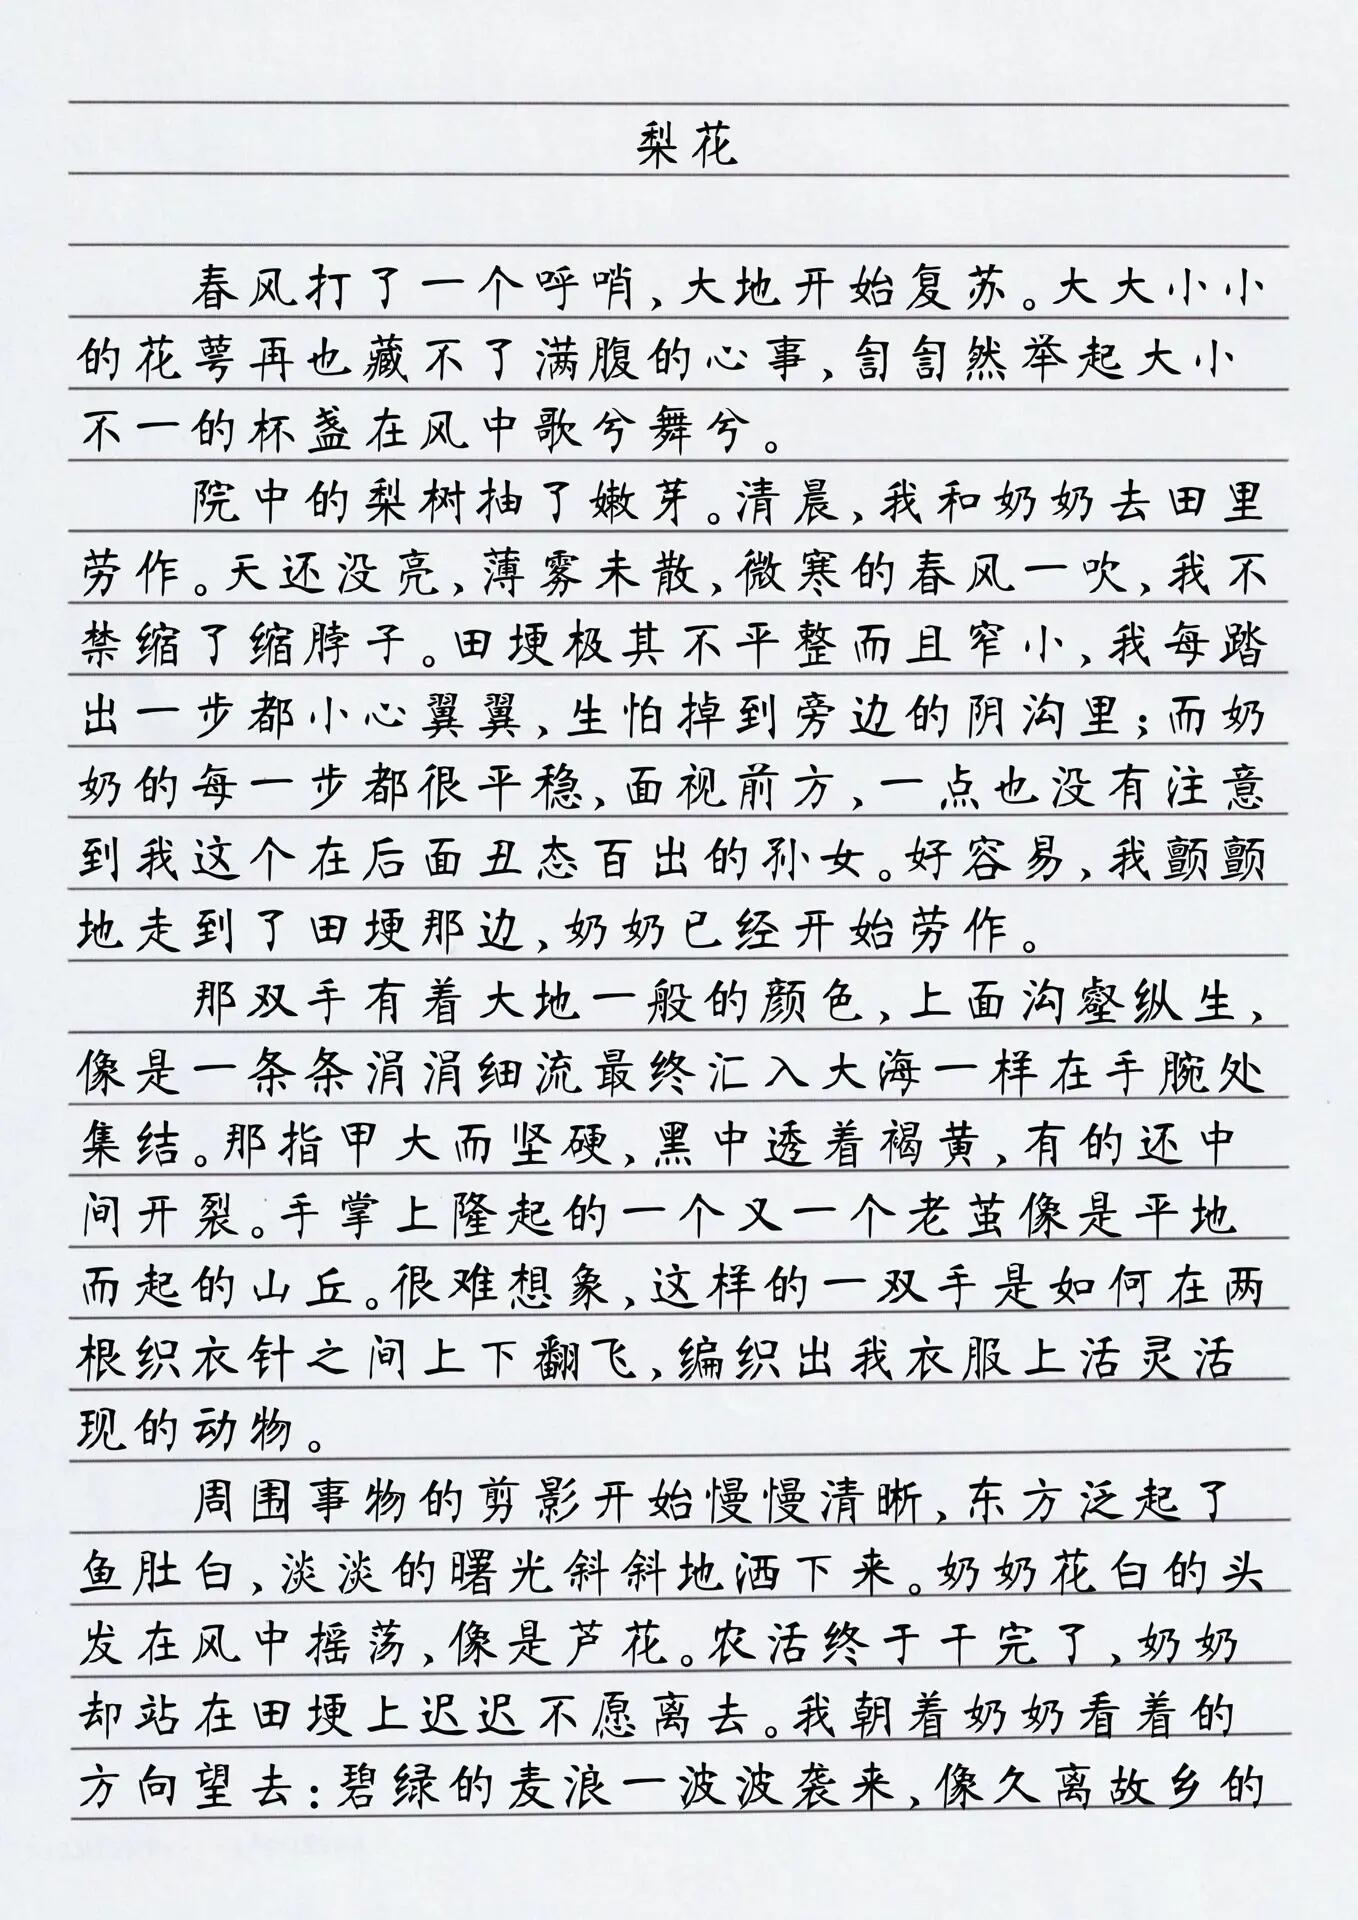 梨花
春风打了一个呼哨,大地开始复苏。大大小小
的花萼再也藏不了满腹的心事,訇訇然举起大小
不一的杯盏在风中歌兮舞兮。
院中的梨树抽了嫩芽。清晨,我和奶奶去田里
劳作。天还没亮,薄雾未散,微寒的春风一吹,我不
禁缩了缩脖子。田埂极其不平整而且窄小,我每踏
出一步都小心翼翼,生怕掉到旁边的阴沟里;而奶
奶的每一步都很平稳,面视前方,一点也没有注意
到我这个在后面丑态百出的孙女。好容易,我颤颤
地走到了田埂那边,奶奶已经开始劳作。
那双手有着大地一般的颜色,上面沟壑纵生,
像是一条条涓涓细流最终汇入大海一样在手腕处
集结。那指甲大而坚硬,黑中透着褐黄,有的还中
间开裂。手掌上隆起的一个又一个老茧像是平地
而起的山丘。很难想象,这样的一双手是如何在两
根织衣针之间上下翻飞,编织出我衣服上活灵活
现的动物。
周围事物的剪影开始慢慢清晰,东方泛起了
鱼肚白,淡淡的曙光斜斜地洒下来。奶奶花白的头
发在风中摇荡,像是芦花。农活终于干完了,奶奶
却站在田埂上迟迟不愿离去。我朝着奶奶看着的
方向望去:碧绿的麦浪一波波袭来,像久离故乡的